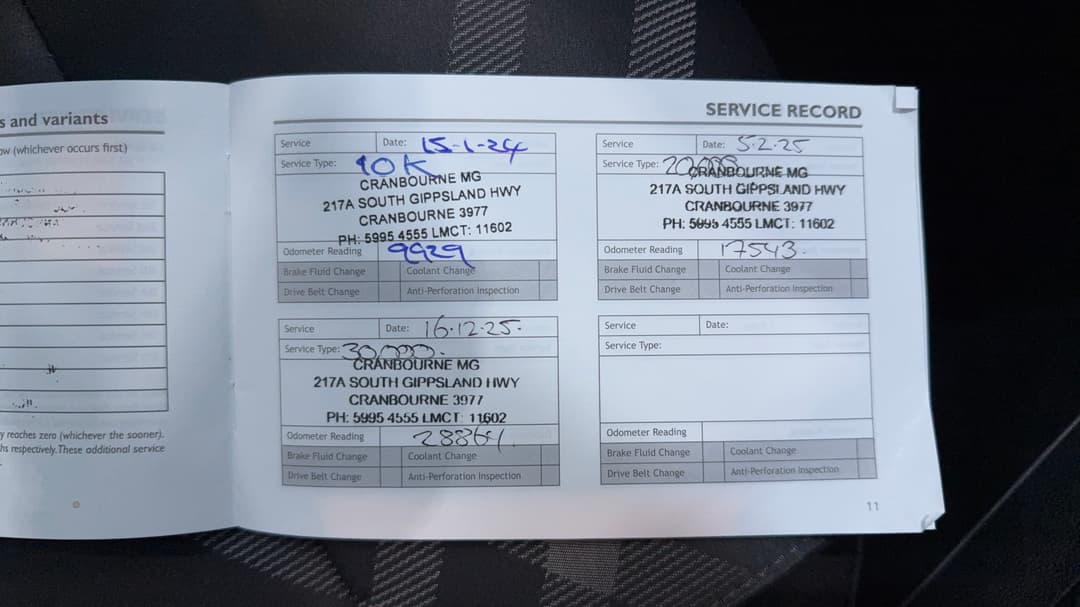 s and variants
ow (whichever occurs first)
y reaches zero (whichever the sooner).
hs respectively. These additional service
SERVICE RECORD
Service Date: 15-1-24
Service Type: 10K
CRANBOURNE MG
217A SOUTH GIPPSLAND HWY
CRANBOURNE 3977
PH: 5995 4555 LMCT: 11602
Odometer Reading 9929
Brake Fluid Change Coolant Change
Drive Belt Change Anti-Perforation Inspection
Service Date: 5.2.25
Service Type: 20000
CRANBOURNE MG
217A SOUTH GIPPSLAND HWY
CRANBOURNE 3977
PH: 5995 4555 LMCT: 11602
Odometer Reading 17543.
Brake Fluid Change Coolant Change
Drive Belt Change Anti-Perforation Inspection
Service Date: 16.12.25.
Service Type: 30,000.
CRANBOURNE MG
217A SOUTH GIPPSLAND HWY
CRANBOURNE 3977
PH: 5995 4555 LMCT: 11602
Odometer Reading
Brake Fluid Change Coolant Change
Drive Belt Change Anti-Perforation Inspection
Service Date:
Service Type:
Odometer Reading
Brake Fluid Change Coolant Change
Drive Belt Change Anti-Perforation Inspection
11